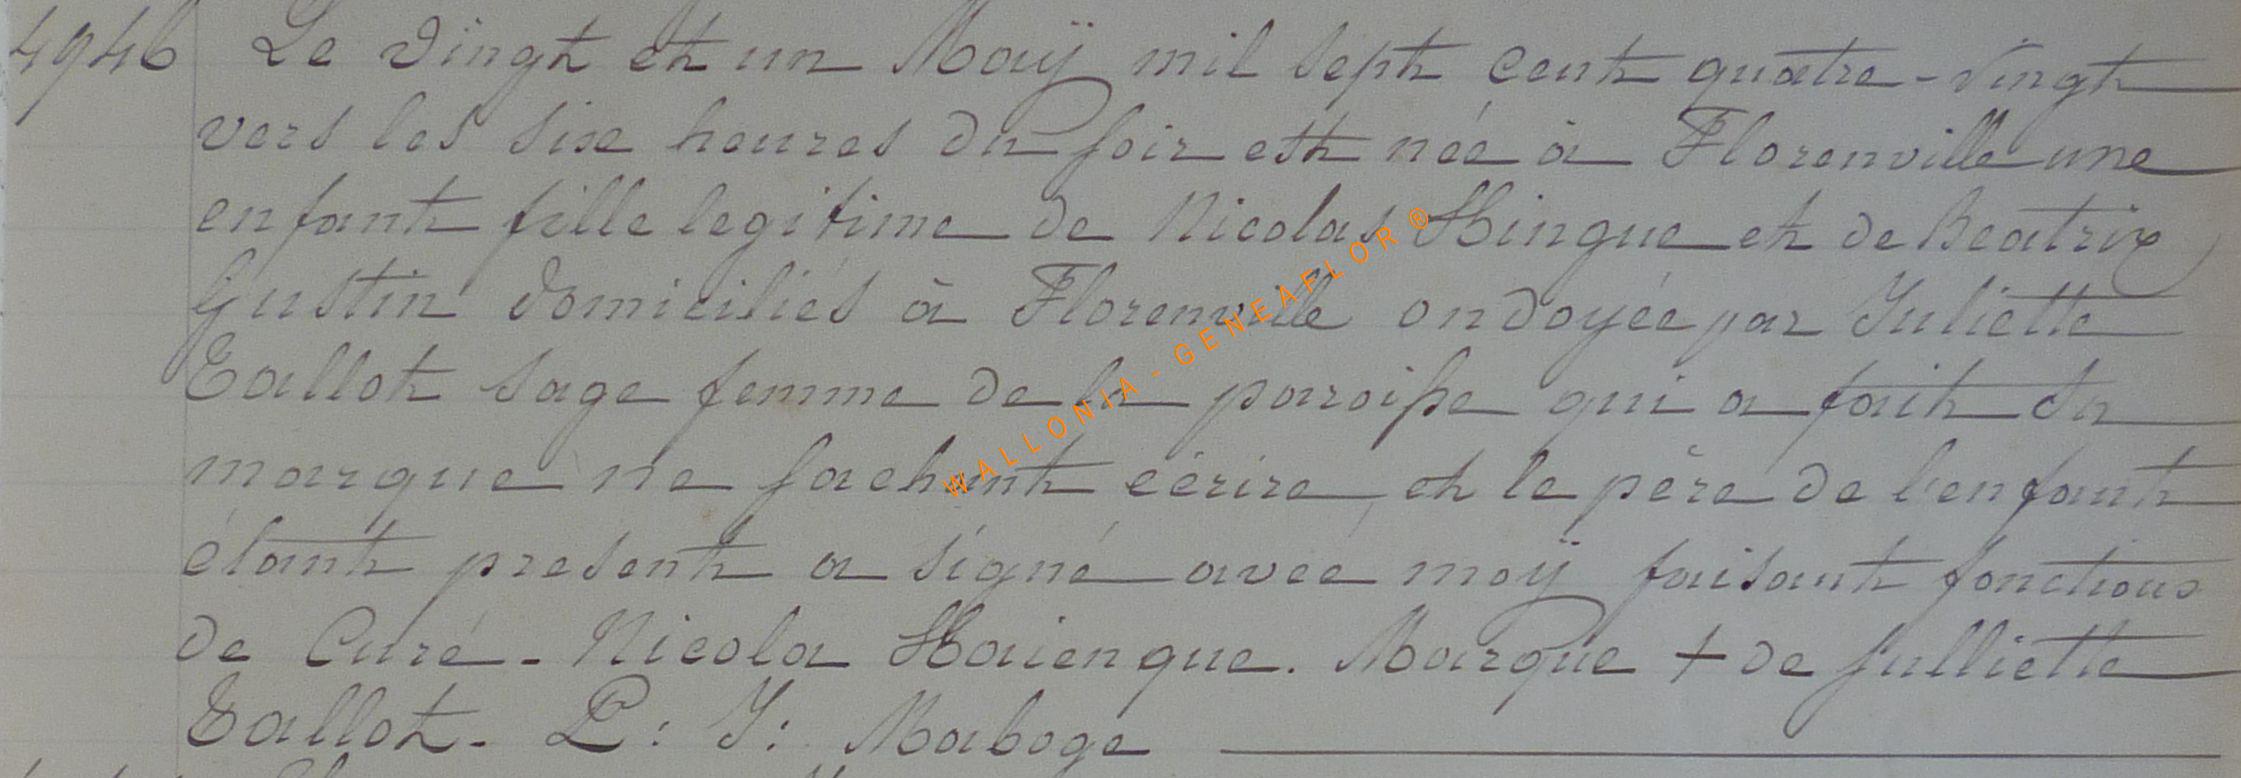 4946 Le vingt et un Maÿ mil sept cent quatre-vingt
vers les sixe heures du soir est née à Florenville une
enfant fille legitime de Nicolas Hingue et de Beatrix
Gustin domiciliés à Florenville ondoyée par Juliette
Tallot sage femme de la paroisse qui a fait sa
marque ne sachant écrire, et le père de l'enfant
étant present a signé avec moÿ faisant fonctions
de Curé - Nicola Haiengue. Marque + de Julliette
Tallot. P: J: Maboge
WALLONIA - GENEAFLOR ®